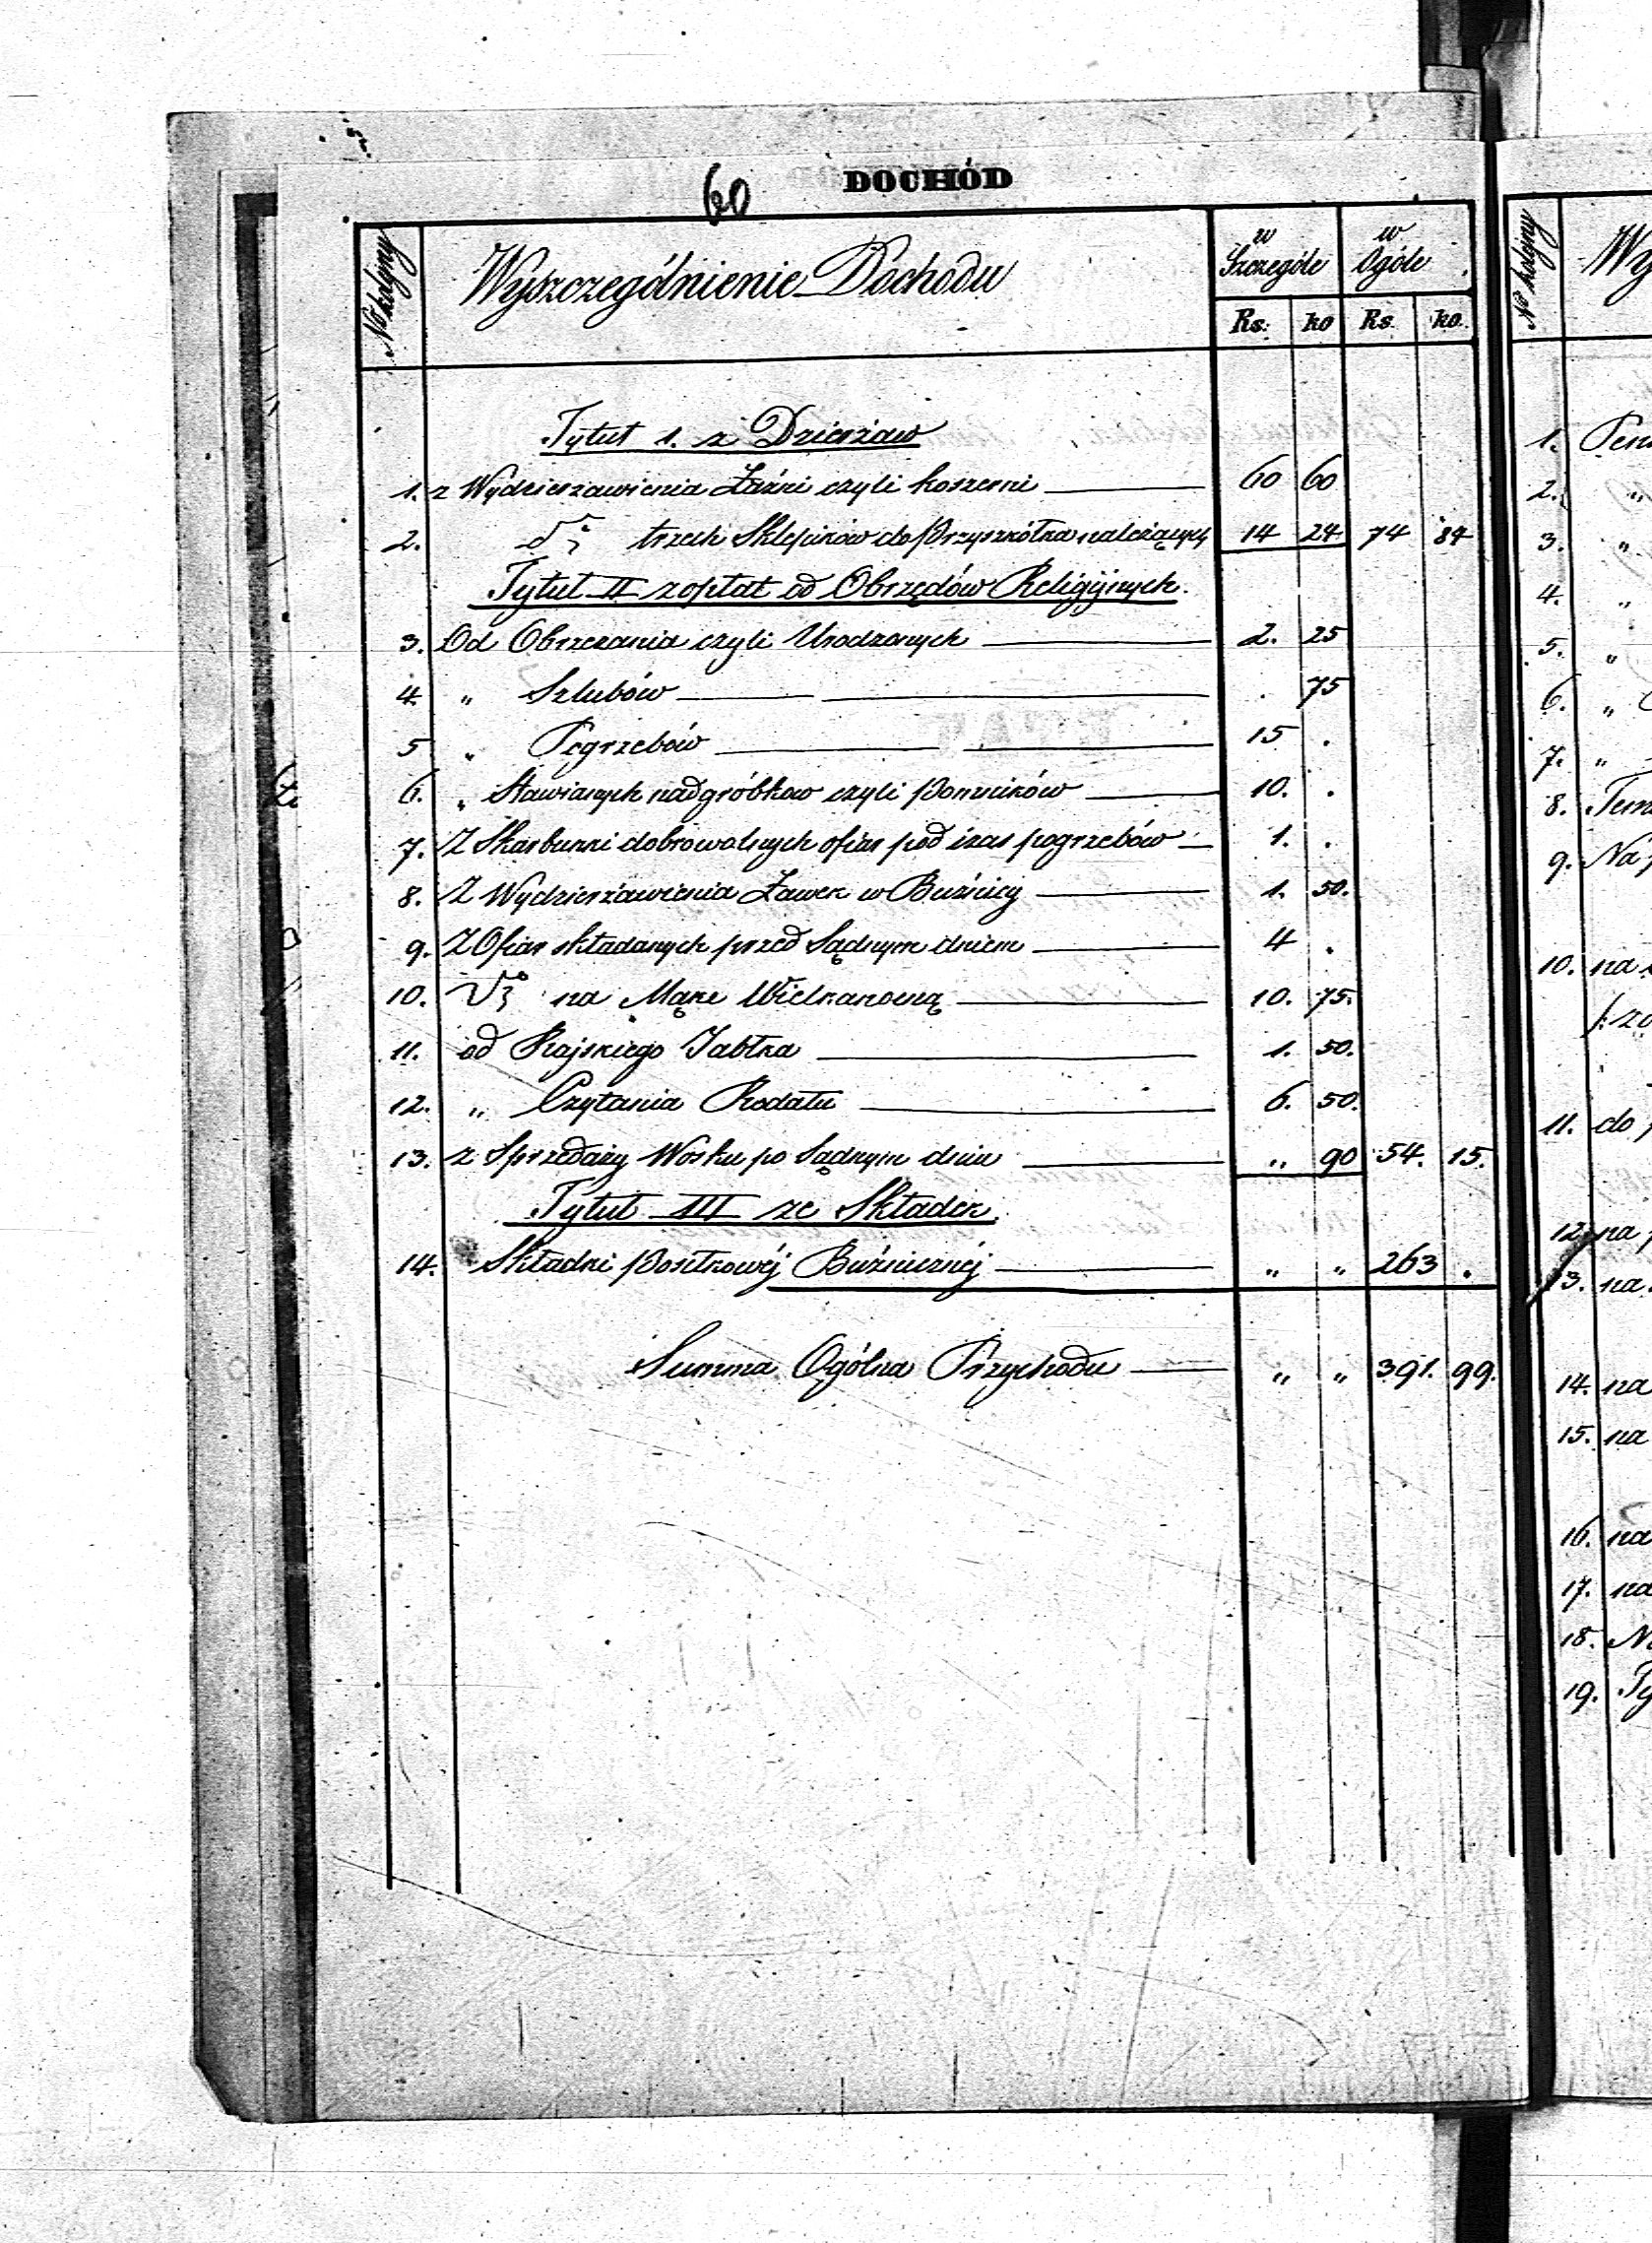 60
DOCHÓD
No kolejny Wyszczególnienie Dochodu w Szczególe w Ogóle
Rs. ko Rs. ko.
Tytuł 1. z Dzierżaw
1. z Wydzierżawienia Łaźni czyli koszerni 60 60
2. trzech Sklepików do Przyszkółka należących 14 24 74 84
Tytuł II z opłat od Obrzędów Religijnych.
3. Od Obrzezania czyli Urodzonych 2. 25
4 " Szlubów . 75
5 " Pogrzebów 15 .
6. " Stawianych nadgróbków czyli Pomników 10. .
7. Z Skarbunki dobrowolnych ofiar pod czas pogrzebów 1. .
8. Z Wydzierżawienia Ławek w Bużnicy 1. 50.
9. Z Ofiar składanych przed Sądnym dniem 4 .
10. na Mąkę Wielkanocną 10. 75.
11. od Rajskiego Jabłka 1. 50.
12. " Czytania Rodału 6. 50.
13. z Sprzedaży Wosku po Sądnym dniu " 90 54. 15.
Tytuł III ze Składek
14. Składki Posiłkowéj Bużnicznéj " " 263 .
Summa Ogólna Przychodu " " 391. 99.
No kolejny
1.
2. "
3. "
4. "
5. "
6. "
7. "
8.
9.
10. na
11. do
12. na
13. na
14. na
15. na
16. na
17. na
18.
19.